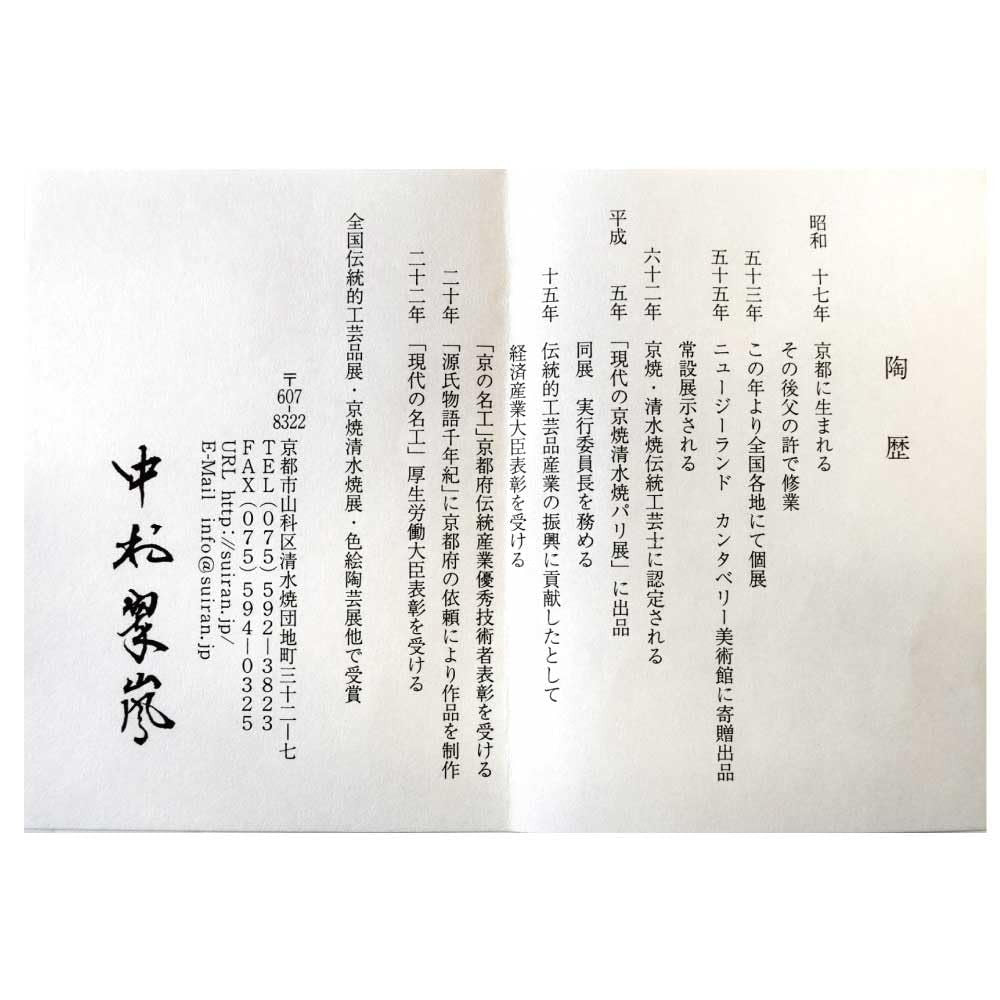 陶歴
昭和 十七年 京都に生まれる
その後父の許で修業
五十三年 この年より全国各地にて個展
五十五年 ニュージーランド カンタベリー美術館に寄贈出品
常設展示される
六十二年 京焼・清水焼伝統工芸士に認定される
平成 五年 「現代の京焼清水焼パリ展」に出品
同展 実行委員長を務める
十五年 伝統的工芸品産業の振興に貢献したとして
経済産業大臣表彰を受ける
「京の名工」京都府伝統産業優秀技術者表彰を受ける
二十年 「源氏物語千年紀」に京都府の依頼により作品を制作
二十二年 「現代の名工」厚生労働大臣表彰を受ける
全国伝統的工芸品展・京焼清水焼展・色絵陶芸展他で受賞
〒607-8322 京都市山科区清水焼団地町三十二―七
TEL(075)592―3823
FAX(075)594―0325
URL http://suiran.jp/
E-Mail info@suiran.jp
中村翠嵐